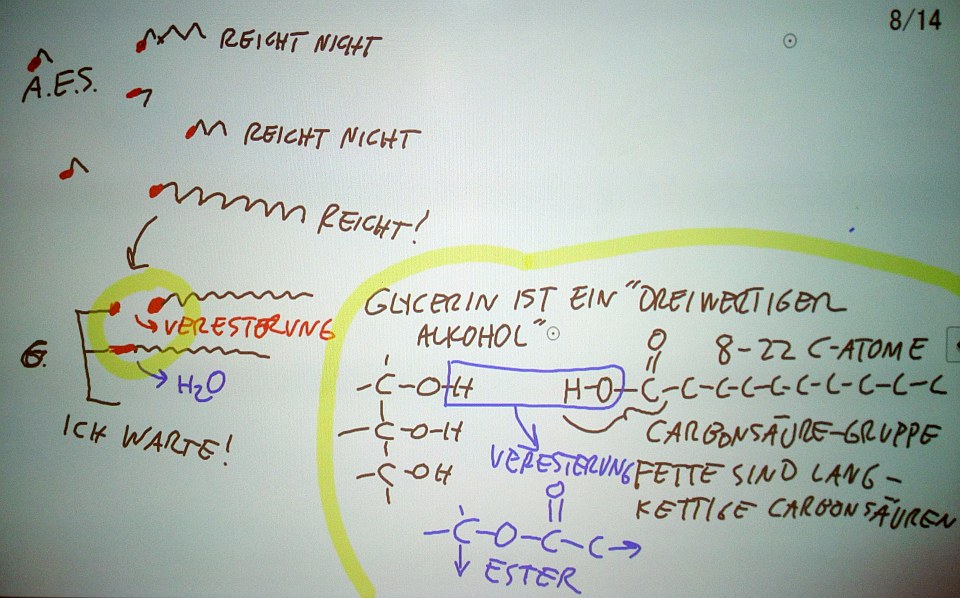 8/14
REICHT NICHT
A.E.S.
REICHT NICHT
REICHT!
VERESTERUNG
G.
H2O
ICH WARTE!
GLYCERIN IST EIN "DREIWERTIGER
ALKOHOL"
O
8-22 C-ATOME
-C-O-H H-O-C-C-C-C-C-C-C-C-C-C
-C-O-H
-C-OH
CARBONSÄURE-GRUPPE
VERESTERUNG
FETTE SIND LANG-
KETTIGE CARBONSÄUREN
O
-C-O-C-C→
ESTER